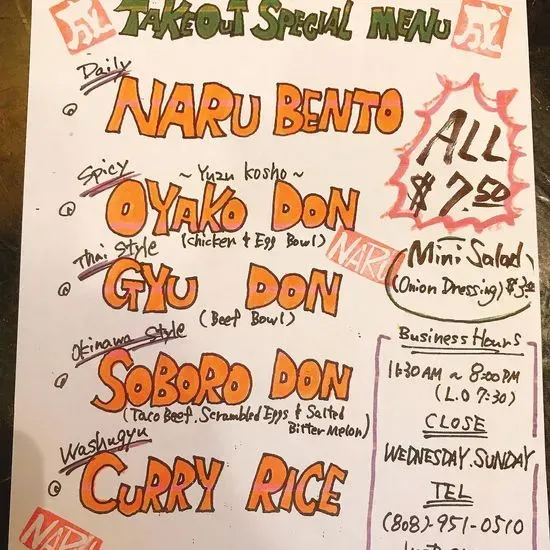 成
TAKEOUT SPECIAL MENU
成
Daily
NARU BENTO
Spicy
~ Yuzu Kosho ~
OYAKO DON
(Chicken & Egg Bowl)
Thai Style
GYU DON
(Beef Bowl)
Okinawa Style
SOBORO DON
(Taco Beef, Scrambled Eggs & Salted
Bitter Melon)
Washugyu
CURRY RICE
NARU
ALL
$7.50
NARU
Mini Salad
(Onion Dressing)
Business Hours
11:30AM ~ 8:00PM
(L.O 7:30)
CLOSE
WEDNESDAY. SUNDAY
TEL
(808)-951-0510